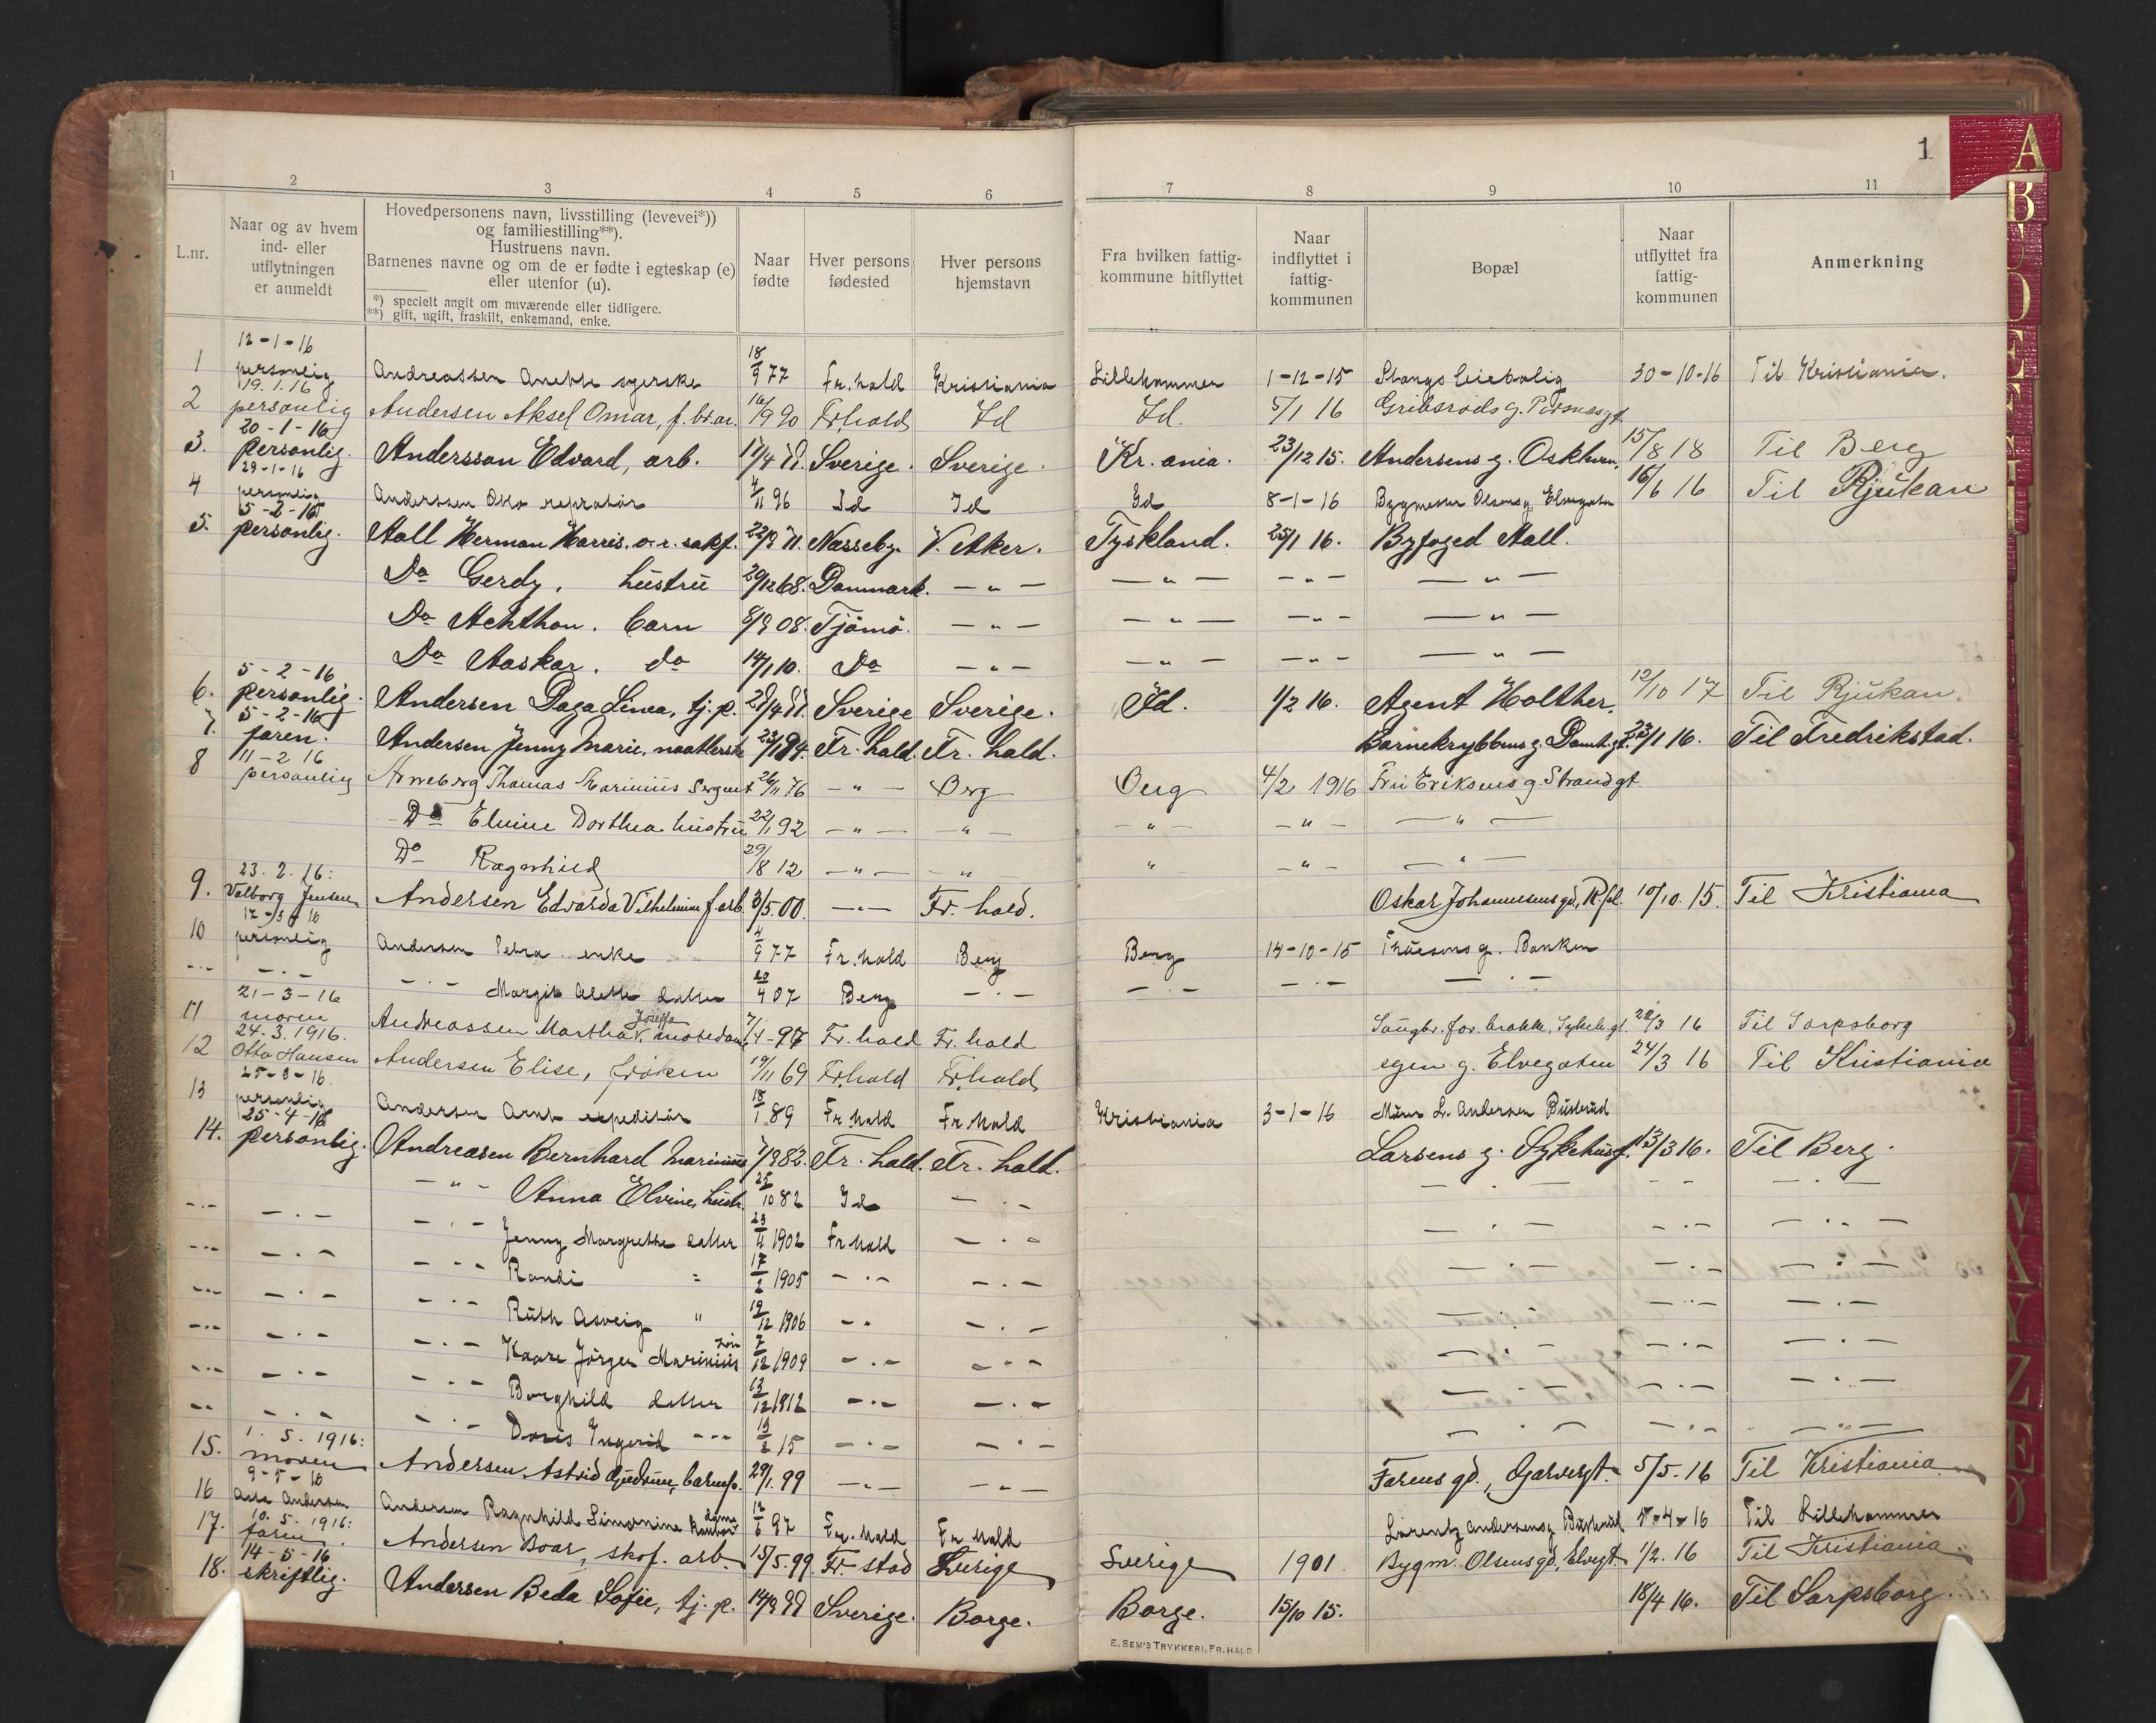 1
A
1 2 3 4 5 6 7 8 9 10 11
L.nr.
Naar og av hvem
ind- eller
utflytningen
er anmeldt
Hovedpersonens navn, livsstilling (levevei*))
og familiestilling**).
Hustruens navn.
Barnenes navne og om de er fødte i egteskap (e)
eller utenfor (u).
*) specielt angit om nuværende eller tidligere.
**) gift, ugift, fraskilt, enkemand, enke.
Naar
fødte
Hver persons
fødested
Hver persons
hjemstavn
Fra hvilken fattig-
kommune hitflyttet
Naar
indflyttet i
fattig-
kommunen
Bopæl
Naar
utflyttet fra
fattig-
kommunen
Anmerkning
12-1-16
1 personlig Andreassen Anette syerske 18/9 77 Fr.hald Kristiania Lillehammer 1-12-15 Stangs leiebolig 30-10-16 Til Kristiania.
19.1.16
2 personlig Andersen Aksel Omar, f. br.ar. 16/9 90 Fr.hald Id Id. 5/1 16 Gribsrøds g.
20-1-16
3. personlig. Andersson Edvard, arb. 17/4 Sverige. Sverige. Kr.ania. 23/12 15. Andersens g. 15/8 18 Til Berg
29-1-16
4 personlig Anderssen Otto 4/11 96 Id Id Id 8-1-16 Bygmester Olsens g Elvegaten 16/6 16 Til Rjukan
5-2-16
5. personlig. Aall Herman Harris. o.r. sakf. 22/8 71. Næsseby. V. Aker. Tyskland. 25/1 16. Byfoged Aall.
Do Gerdy. hustru 29/12 68. Danmark. -"- -"- -"- -"-
Do Achthon. barn 8/9 08. Tjömö. -"- -"- -"- -"-
Do Aaskar. do 14/1 10. Do -"- -"- -"- -"-
5-2-16
6. personlig. Andersen Daga Linea, tj.p. Sverige Sverige. Id. 1/2 16. Agent Holther. 12/10 17 Til Rjukan.
5-2-16
7. faren. Andersen Jenny Marie, Fr.hald. Fr.hald. Barnekrybbens g. Damh.gt. 23/1 16. Til Fredrikstad.
11-2 16
8 personlig Arneberg Thomas Marinius Sergent 26/11 76 -"- Berg Berg 4/2 1916 Fru Eriksens g. Strandgt
Do Elvine Dorthea hustru 22/1 92 -"- -"- -"- -"- -"-
Do Ragnhild 29/8 12 -"- -"- " -"- -"-
23.2.16:
9. Valborg Jensen Andersen Edvarda Vilhelmine f.arb. 3/5.00. -"- Fr.hald. Oskar Johannesens gd, 10/10.15. Til Kristiania
12-3-16
10 personlig Andersen Petra enke 4/9 77 Fr.hald Berg Berg 14-10-15 g. Banken
-"- -"- -"- Margit Alette datter 20/4 07 Berg -"- -"- -"- -"-
21-3-16
11 moren Andreassen Martha Josefa V. 7/4-97 Fr.hald Fr.hald 28/3 16 Til Sarpsborg
24.3.1916.
12 Otto Hansen Andersen Elise, frøken 19/11 69 Fr.hald Fr.hald egen g. Elvegaten 24/3 16 Til Kristiania
25-3-16.
13 personlig Andersen Arnt expeditør 18/1 89 Fr.hald Fr.hald Kristiania 3-1-16 Murer L. Andersen Busterud
25-4-16
14. personlig. Andreasen Bernhard Marinius 7/9 82. Fr.hald. Fr.hald. Larsens g. Sykehusg. 13/3 16. Til Berg.
-"- Anna Elvine, hustr. 25/10 82 Id -"- -"- -"- -"-
-"- -"- -"- Jenny Margrethe datter 23/4 1902 Fr.hald -"- -"- -"- -"-
-"- -"- -"- Randi = 17/2 1905 -"- -"- -"- -"- -"-
-"- -"- -"- Ruth Asveig " 19/12 1906 -"- -"- -"- -"- -"-
-"- -"- -"- Kaare Jørgen Marinius søn 7/12 1909 -"- -"- -"- -"- -"-
-"- -"- -"- Borghild datter 13/12 1912 -"- -"- -"- -"- -"-
-"- -"- -"- Doris Ingerid -"- 13/2 15 -"- -"- -"- -"- -"-
1.5.1916:
15. moren Andersen, Astrid Gudrun, barnep. 29/1.99 -"- -"- Farens gd., Garvergt. 5/5-16 Til Kristiania
9-5-16
16 Andersen Andersen Ragnhild Simonine kontordame 12/6 97 Fr.hald Fr.hald Lorentz Andersens g Busterud 5-4-16 Til Lillehammer
10.5.1916:
17. faren. Andersen Boar, skof. arb. 15/5.99. Fr.stad Sverige Sverige 1901. Bygm. Olsens gd, Elvegt. 1/2.16 Til Kristiania.
14-5-16
18. skriftlig. Andersen Beda Sofie, tj.p. Sverige. Borge. Borge. 15/10 15. 18/4 16. Til Sarpsborg.
E. SEM'S TRYKKERI, FR.HALD